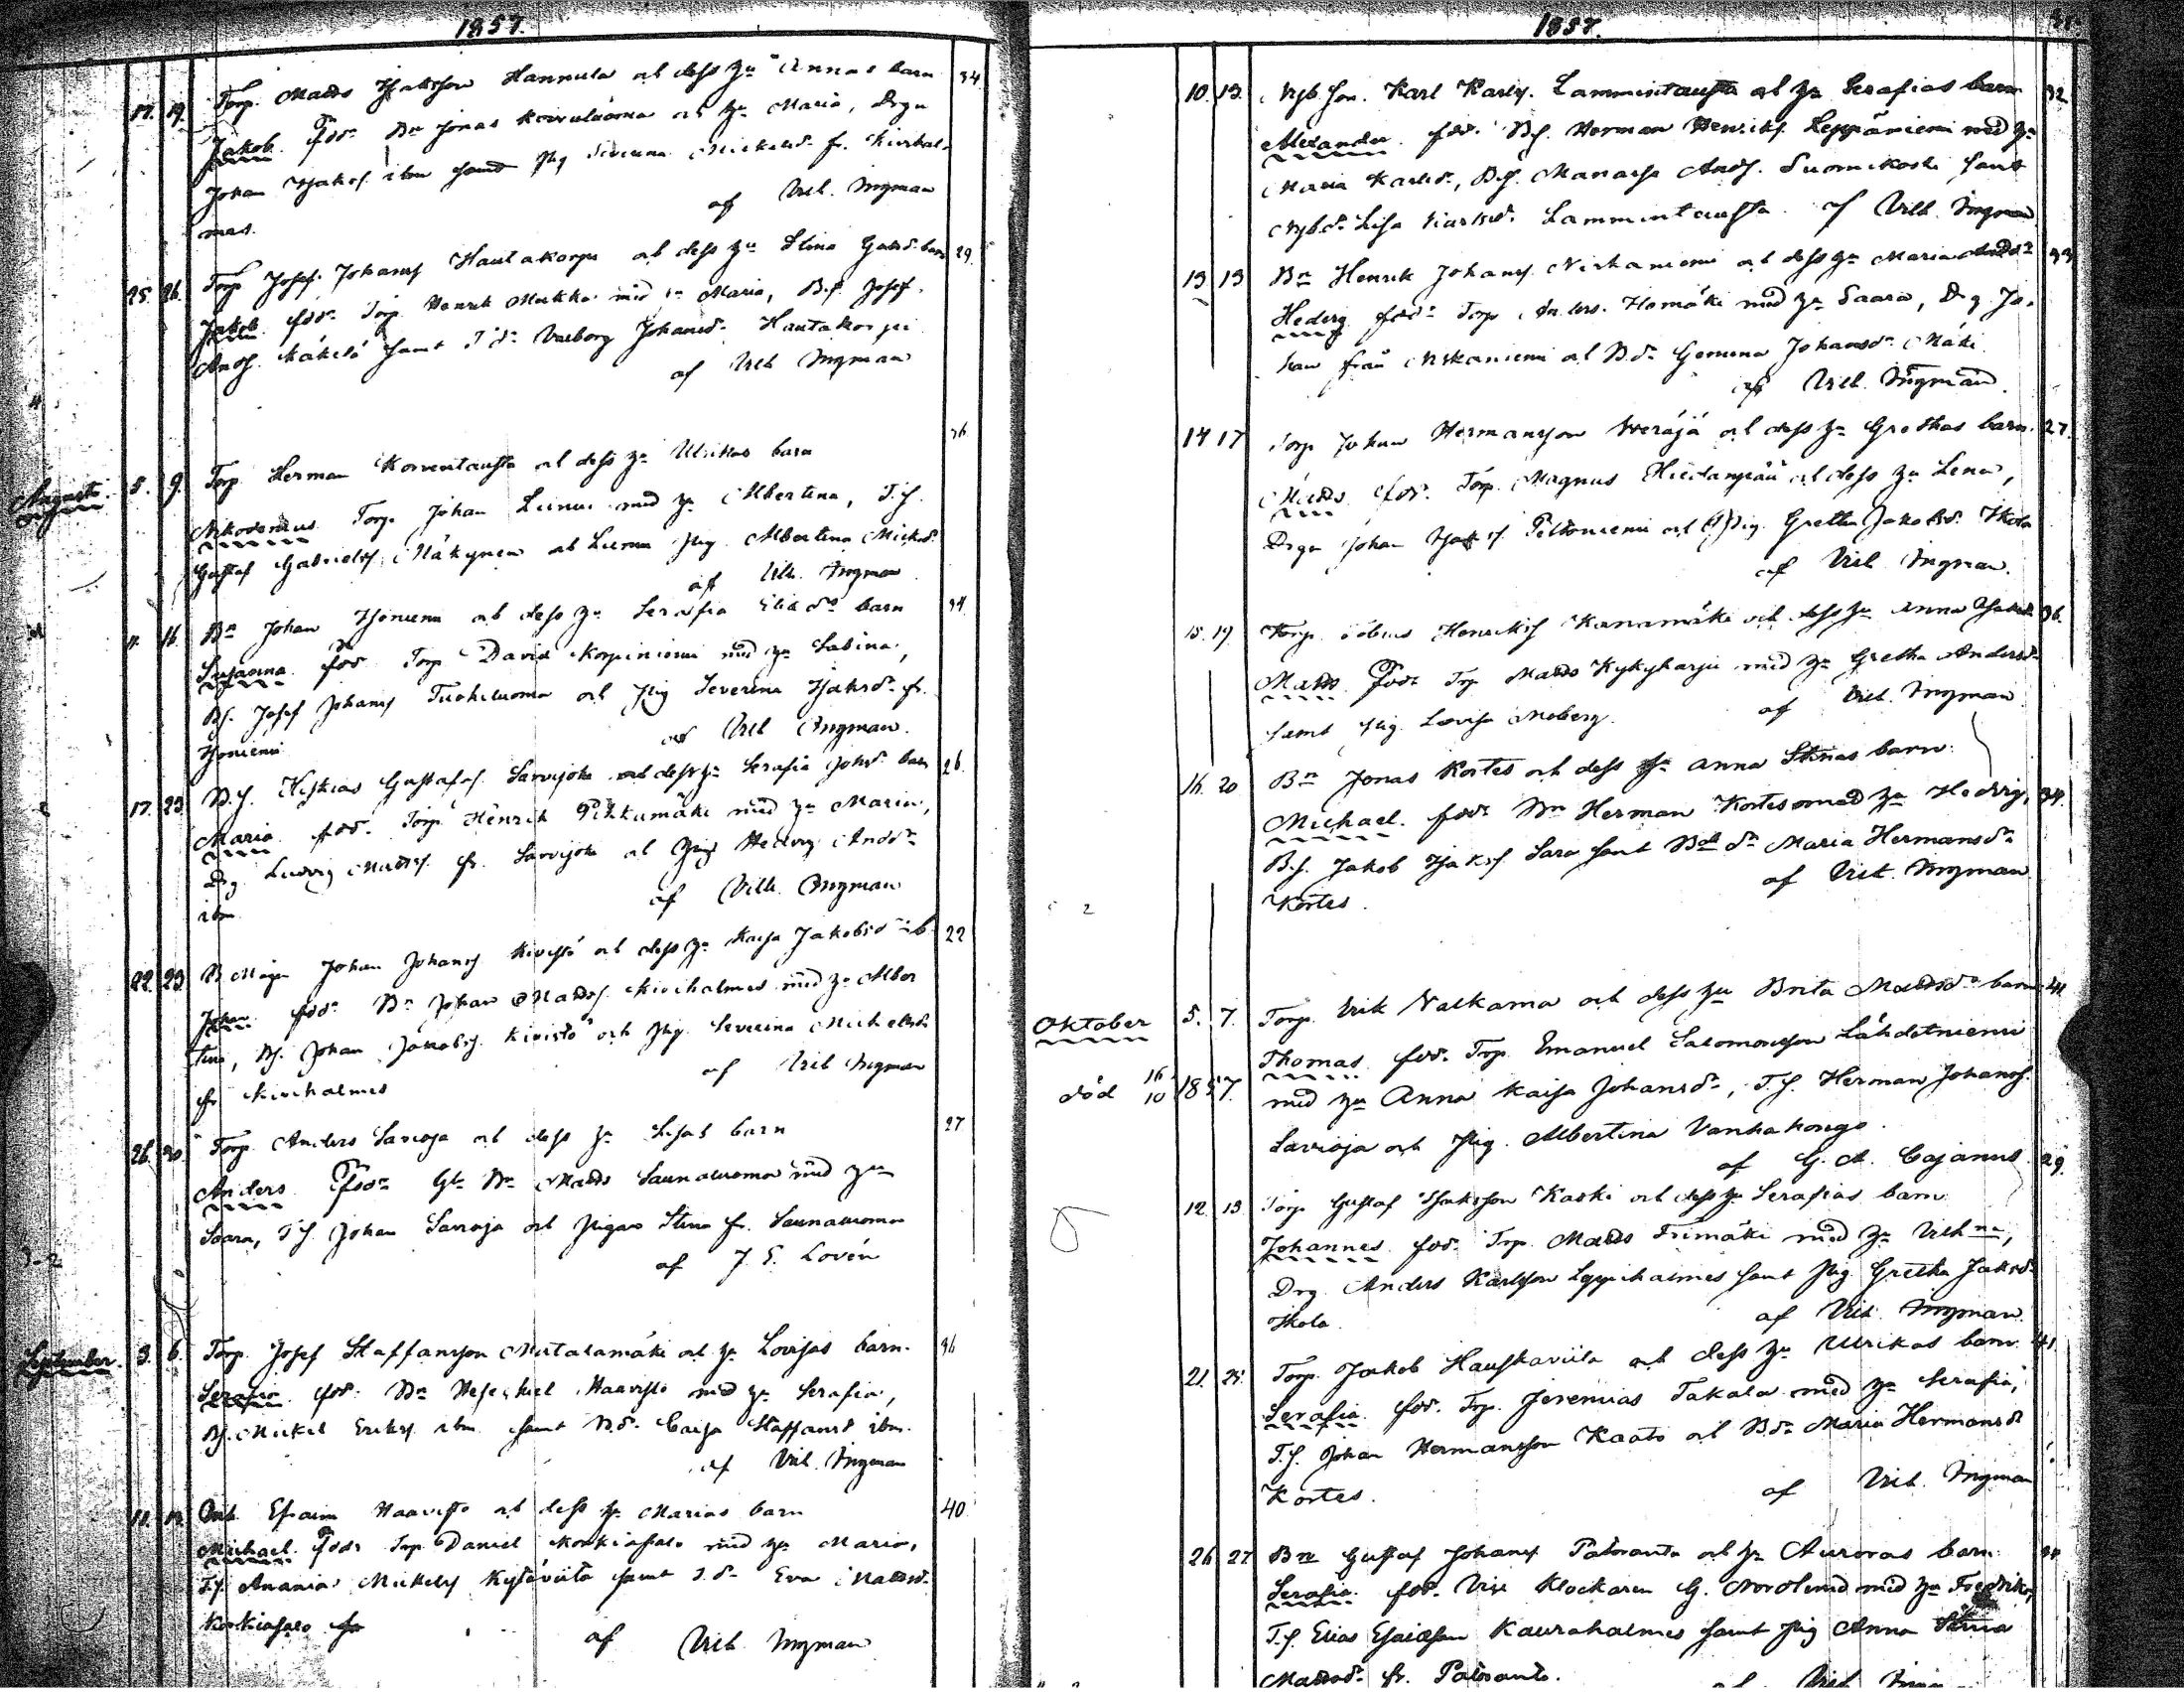 1857.
17. 19. Torp. Matts Isaksson Hannula och dess hu Annas barn 34
Jakob. fadd. Bn Jonas Koivuluoma och hu Maria, Drgn
Johan Isaks. ibm samt Pig Severina Mickelsd. fr. Kivihal-
mes. af Vilh. Ingman
25. 26. Torp Josef Johanss Hautakorpi och dess hu Stina Gabrd. barn 29.
Jakob fadd. Torp. Henrik Markka med hu Maria, B.s. Josef
Ands. Mäkelä samt T.dr Valborg Johansd. Hautakorpi
af Vilh Ingman
Augusti. 5. 9. Torp Herman Korventausta och dess hu Ulrikas barn 36
Nikodemus. Torp. Johan Luoma med hu Albertina, T.s.
Gustaf Gabrielss. Mäkynen och Luoma Pig Albertina Mickd.
af Vilh. Ingman
11. 16. Bn Johan Isoniemi och dess hu Serafia Eliæ dr barn 34
Susanna fadd Torp David Korpiniemi med hu Sabina,
Bs. Josef Johanss Tuohiluoma och Pig Severina Isaksd. fr.
Isoniemi af Vilh Ingman.
17. 23. B.s. Hiskias Gustafs. Sarvijoki och dess hu Serafia Johsd. barn 26.
Maria fadd. Torp Henrik Pikkumäki med hu Maria,
Dg Ludvig Mattss. fr. Sarvijoki och Pig Hedvig Andsd.
ibm af Vilh. Ingman
22. 23. B.Mågen Johan Johanss Kivistö och dess hu Kaisa Jakobsd. b. 22
Johan fadd. Bn Johan Mattss. Kiviholmes med hu Alber
tina, Bs. Johan Jakobss. Kivistö och Pig. Severina Michelsd.
fr Kiviholmes af Vilh Ingman
26. 30. Torp. Anders Savioja och dess hu Lisas barn 27
Anders fadd. Gl. Bn Matts Saunaluoma med hu
Saara, T.s. Johan Savioja och Pigan Stina fr. Saunaluoma
af J. E. Lovén
September. 3. 6. Torp. Josef Staffansson Matalamäki och hu Lovisas barn. 36
Serafia fadd. Bn Hesekiel Haavisto med hu Serafia,
Bs. Mickel Eriks. ibm samt B.dr Caisa Staffansd ibm.
af Vilh. Ingman
11. 13. Efraim Haavisto och dess hu Marias barn 40
Michael. fadd. Torp Daniel Korkiasalo med hu Maria,
T.s. Anania Mickelss Kytöviita samt T.dr Eva Mattsd.
Korkiasalo af Vilh Ingman
1857.
10. 13. Nyb. son. Karl Karls. Lammintausta och hu Serafias barn 32.
Alexander. fadd. B.s. Herman Henriks. Leppäniemi med hu
Maria Karlsd., B.s. Manasse Ands. Suomikoski samt
Nyb.dr Lisa Karlsd. Lammintausta. af Vilh. Ingman
13 13 Bn Henrik Johanss. Niskaniemi och dess hu Maria Andsdr 33
Hedvig. fadd. Torp Anders. Homäki med hu Saara, Drg Jo-
han från Niskaniemi och B.dr Gemina Johansdr Mäki.
af Vilh. Ingman.
14 17 Torp Johan Hermansson Weräjä och dess hu Grethas barn. 27.
Matts. fadd. Torp. Magnus Hiedanpää och dess hu Lena,
Drgn Johan Isakss. Peltoniemi och Pig. Gretha Jakobsd. Ikola
af Vilh Ingman.
15. 19 Torp. Tobias Henrikss Kanamäki och dess hu Anna Isaksd. 36.
Matts. fadd. Torp Matts Kykyharju med hu Gretha Andersd.
samt Pig. Lovisa Moberg. af Vilh. Ingman
16. 20 Bn Jonas Kortes och dess hu Anna Stinas barn. 34.
Michael. fadd. Bn Herman Kortes med hu Hedvig,
B.s. Jakob Isakss Sara samt Bdr Maria Hermansdr
Kortes. af Vilh. Ingman
Oktober 5. 7. Torp. Erik Valkama och dess hu Brita Mattsdr barn 41
Thomas. fadd. Torp. Emanuel Salomonsson Lähdetniemi
död 16/10 1857. med hu Anna Kaisa Johansdr, T.s. Herman Johanss.
Savioja och Pig. Albertina Vanhahonge.
af G. A. Cajanus.
12 13 Torp Gustaf Isaksson Koski och dess hu Serafias barn 29.
Johannes. fadd. Torp. Matts Irimäki med hu Vilhna,
Drg Anders Karlsson Leppihalmes samt Pig Gretha Jaksd.
Ikola. af Vilh. Ingman.
21. 25. Torp. Jakob Hauskaviita och dess hu Ulrikas barn. 41
Serafia. fadd. Torp. Jeremias Takala med hu Serafia,
T.s. Johan Hermansson Kaato och B.dr Maria Hermansd
Kortes. af Vilh. Ingman
26. 27 Bn Gustaf Johanss Paloranta och hu Auroras barn.
Serafia. fadd. Vice Klockaren G. Nordlund med hu Fredrika,
T.s. Elias Esaiæson Kauraholmes samt Pig Anna Stina
Mattsdr fr. Paloranta. af Vilh Ingman